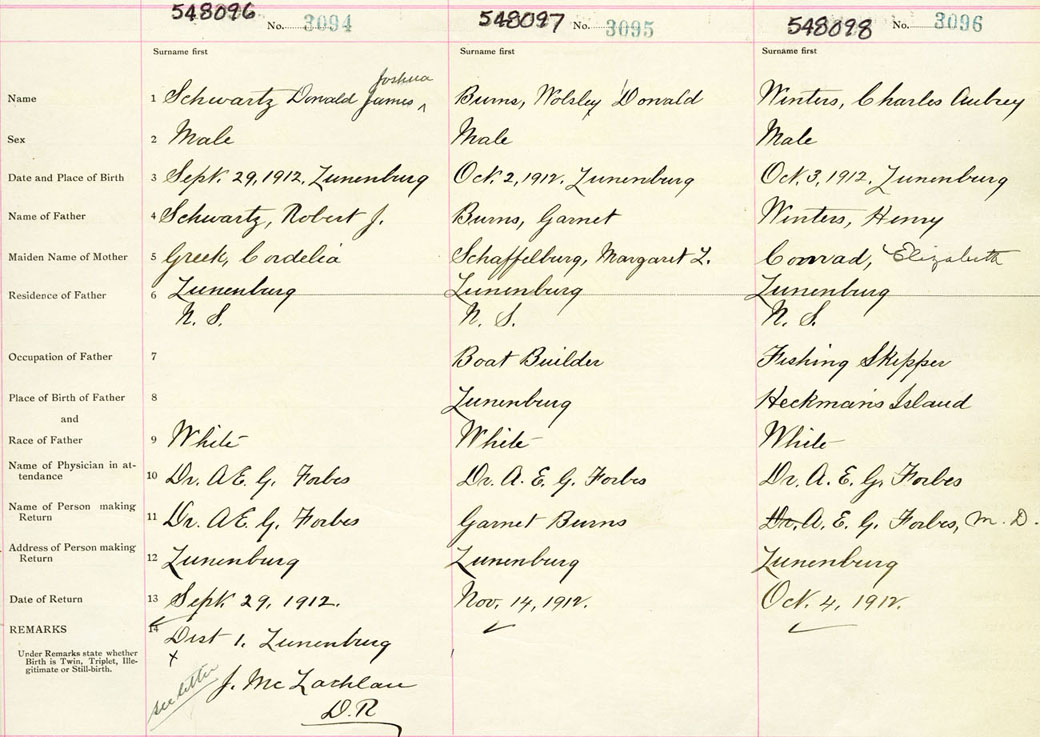 548096 No. 3094 548097 No. 3095 548098 No. 3096
Surname first Surname first Surname first
Joshua
Name 1 Schwartz Donald James ^ Burns, Wolsley Donald Winters, Charles Aubrey
Sex 2 Male Male Male
Date and Place of Birth 3 Sept. 29, 1912. Lunenburg Oct. 2, 1912. Lunenburg Oct. 3, 1912. Lunenburg
Name of Father 4 Schwartz, Robert J. Burns, Garnet Winters, Henry
Maiden Name of Mother 5 Greek, Cordelia Schaffelburg, Margaret L. Conrad, Elizabeth
Residence of Father 6 Lunenburg Lunenburg Lunenburg
N. S. N. S. N. S.
Occupation of Father 7 Boat Builder Fishing Skipper
Place of Birth of Father 8 Lunenburg Heckman's Island
and
Race of Father 9 White White White
Name of Physician in at-
tendance 10 Dr. A E. G. Forbes Dr. A. E. G. Forbes Dr. A. E. G. Forbes
Name of Person making
Return 11 Dr. A E. G. Forbes Garnet Burns Dr. A. E. G. Forbes, M. D.
Address of Person making
Return 12 Lunenburg Lunenburg Lunenburg
Date of Return 13 Sept. 29, 1912. Nov. 14, 1912. Oct. 4, 1912.
REMARKS 14 Dist 1. Lunenburg
Under Remarks state whether
Birth is Twin, Triplet, Ille-
gitimate or Still-birth.
x
see letter
J. McLachlan
D. R